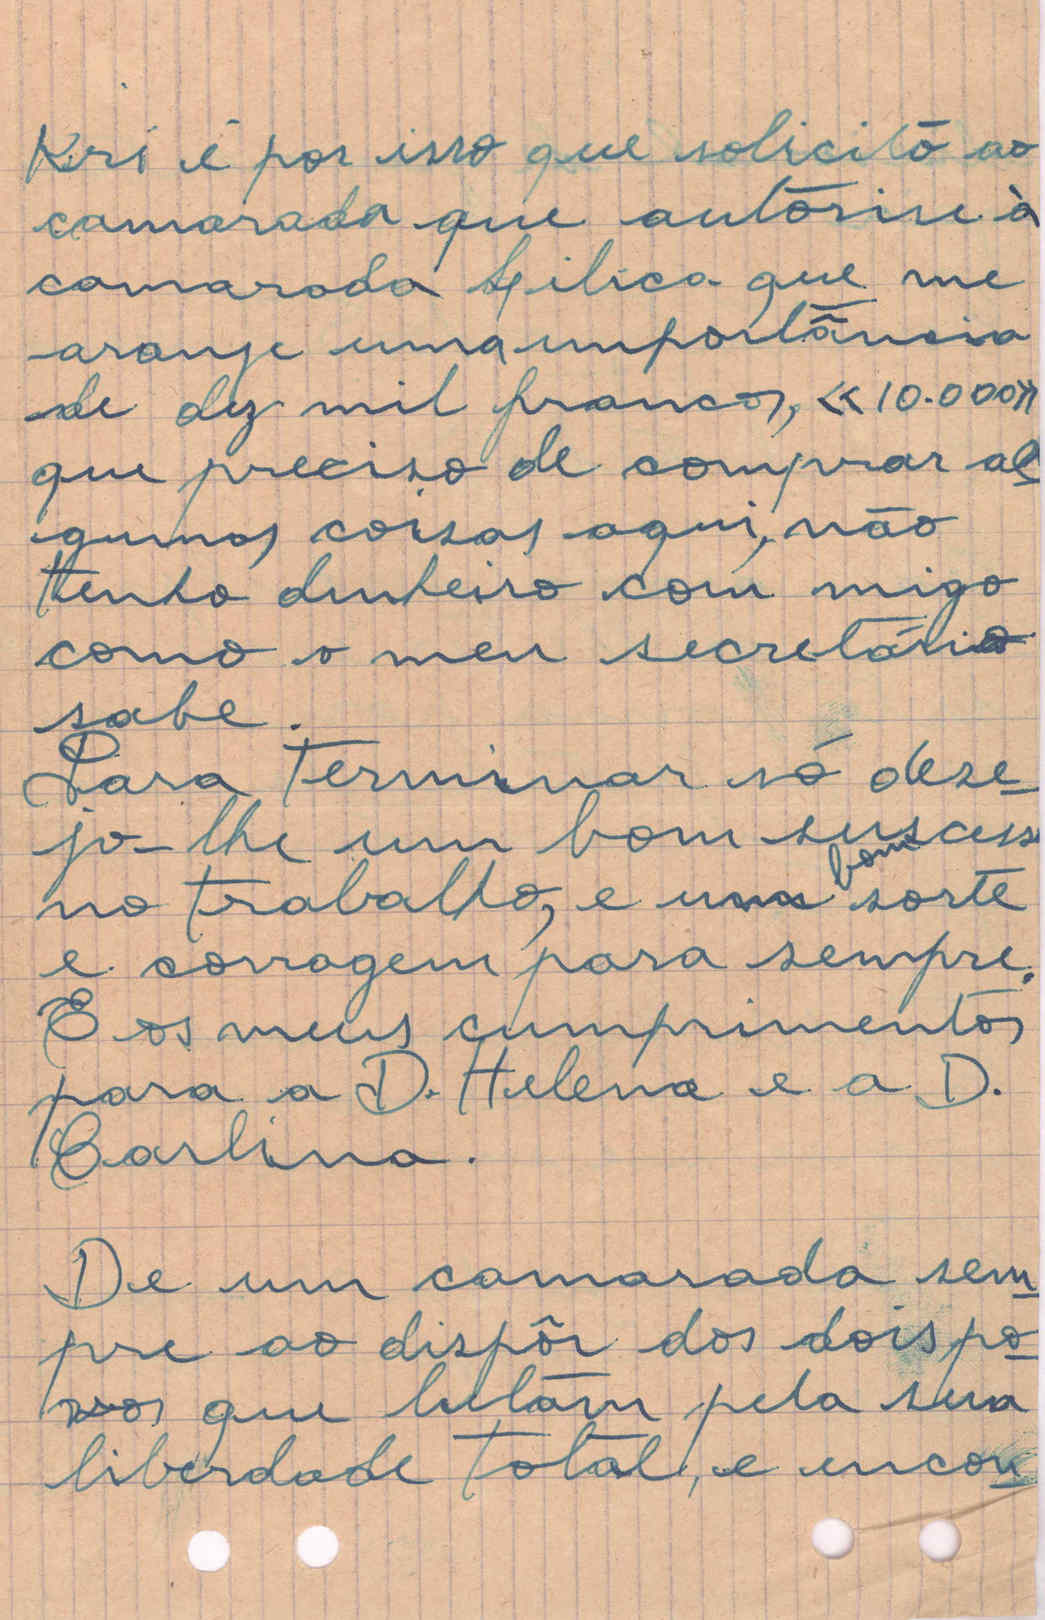 Kri é por isso que solicito ao
camarada que autorise à
camarada Lilica que me
aranje uma importância
de dez mil francos, «10.000»
que preciso de comprar al
gumas coisas aqui, não
tenho dinheiro com migo
como o meu secretário
sabe.
Para terminar só dese-
jo-lhe um bom suscesso
no trabalho, e uma boma sorte
e corragem para sempre.
E os meus cumprimentos
para a D. Helena e a D.
Carlina.
De um camarada sem
pre ao dispôr dos dois po
vos que lutam pela sua
liberdade total, e encon